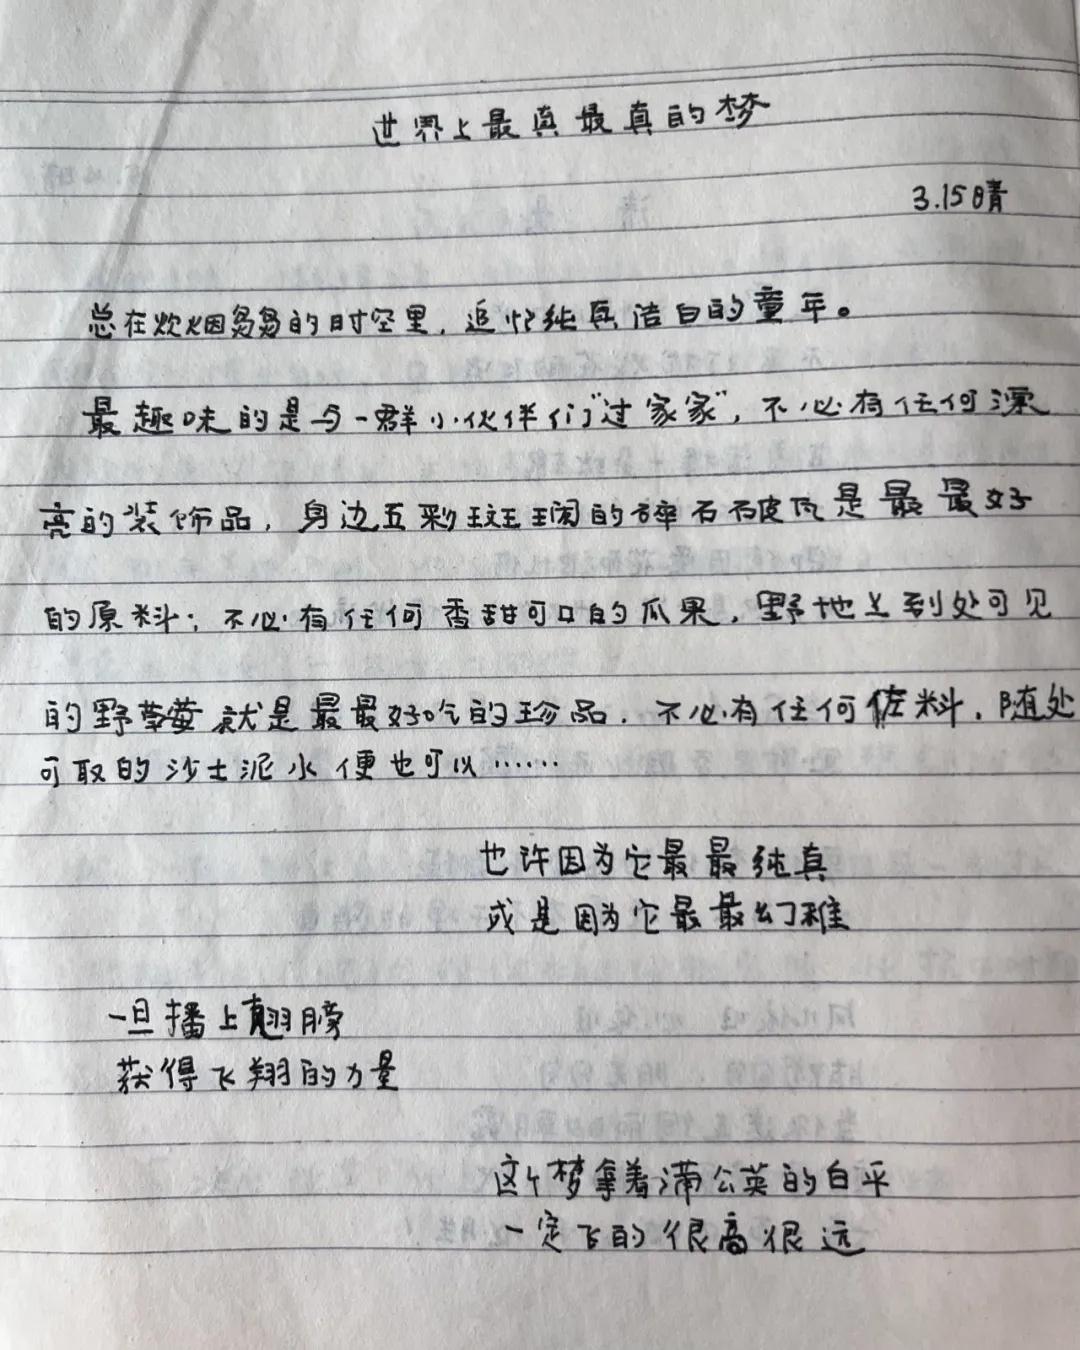 世界上最真最真的梦
3.15晴
总在炊烟袅袅的时空里，追忆纯真洁白的童年。
最趣味的是与一群小伙伴们“过家家”，不必有任何漂
亮的装饰品，身边五彩斑斓的碎石破瓦是最最好
的原料；不必有任何香甜可口的瓜果，野地上到处可见
的野草莓就是最最好吃的珍品．不必有任何佐料．随处
可取的沙土泥水便也可以……
也许因为它最最纯真
或是因为它最最幻稚
一旦播上翅膀
获得飞翔的力量
这个梦拿着满公英的白平
一定飞的很高很远